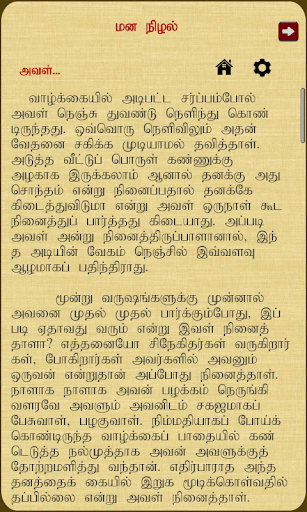 மன நிழல்
அவள்...
வாழ்க்கையில் அடிபட்ட சர்ப்பம்போல்
அவள் நெஞ்சு துவண்டு நெளிந்து கொண்
டிருந்தது. ஒவ்வொரு நெளிவிலும் அதன்
வேதனை சகிக்க முடியாமல் தவித்தாள்.
அடுத்த வீட்டுப் பொருள் கண்ணுக்கு
அழகாக இருக்கலாம் ஆனால் தனக்கு அது
சொந்தம் என்று நினைப்பதால் தனக்கே
கிடைத்துவிடுமா என்று அவள் ஒருநாள் கூட
நினைத்துப் பார்த்தது கிடையாது. அப்படி
அவள் அன்று நினைத்திருப்பாளானால், இந்
த அடியின் வேகம் நெஞ்சில் இவ்வளவு
ஆழமாகப் பதிந்திராது.
மூன்று வருஷங்களுக்கு முன்னால்
அவனை முதல் முதல் பார்க்கும்போது, இப்
படி ஏதாவது வரும் என்று இவள் நினைத்
தாளா? எத்தனையோ சிநேகிதர்கள் வருகிறார்
கள், போகிறார்கள் அவர்களில் அவனும்
ஒருவன் என்றுதான் அப்போது நினைத்தாள்.
நாளாக நாளாக அவன் பழக்கம் நெருங்கி
வளரவே அவளும் அவனிடம் சகஜமாகப்
பேசுவாள், பழகுவாள். நிம்மதியாகப் போய்க்
கொண்டிருந்த வாழ்க்கைப் பாதையில் கண்
டெடுத்த நல்முத்தாக அவன் அவளுக்குத்
தோற்றமளித்து வந்தான். எதிர்பாராத அந்த
தனத்தைக் கையில் இறுக மூடிக்கொள்வதில்
தப்பில்லை என்று அவள் நினைத்தாள்.